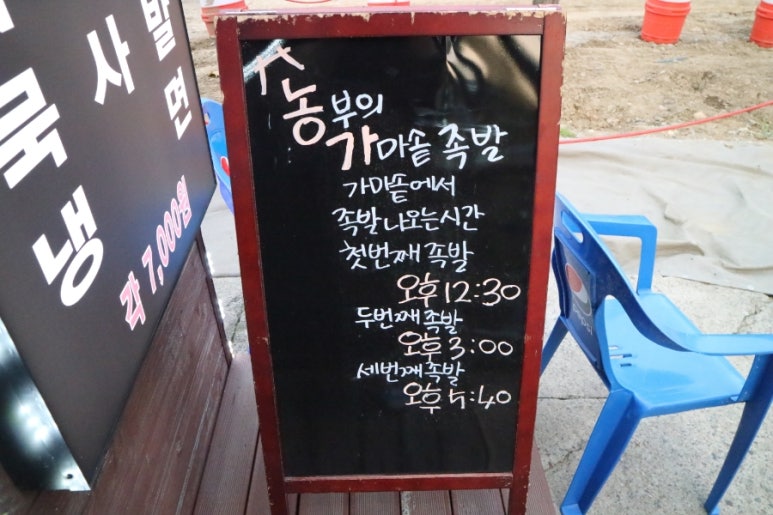 농부의
가마솥 족발
가마솥에서
족발 나오는시간
첫번째 족발
오후 12:30
두번째 족발
오후 3:00
세번째 족발
오후 5:40
사발
묵
냉면
각 7,000원